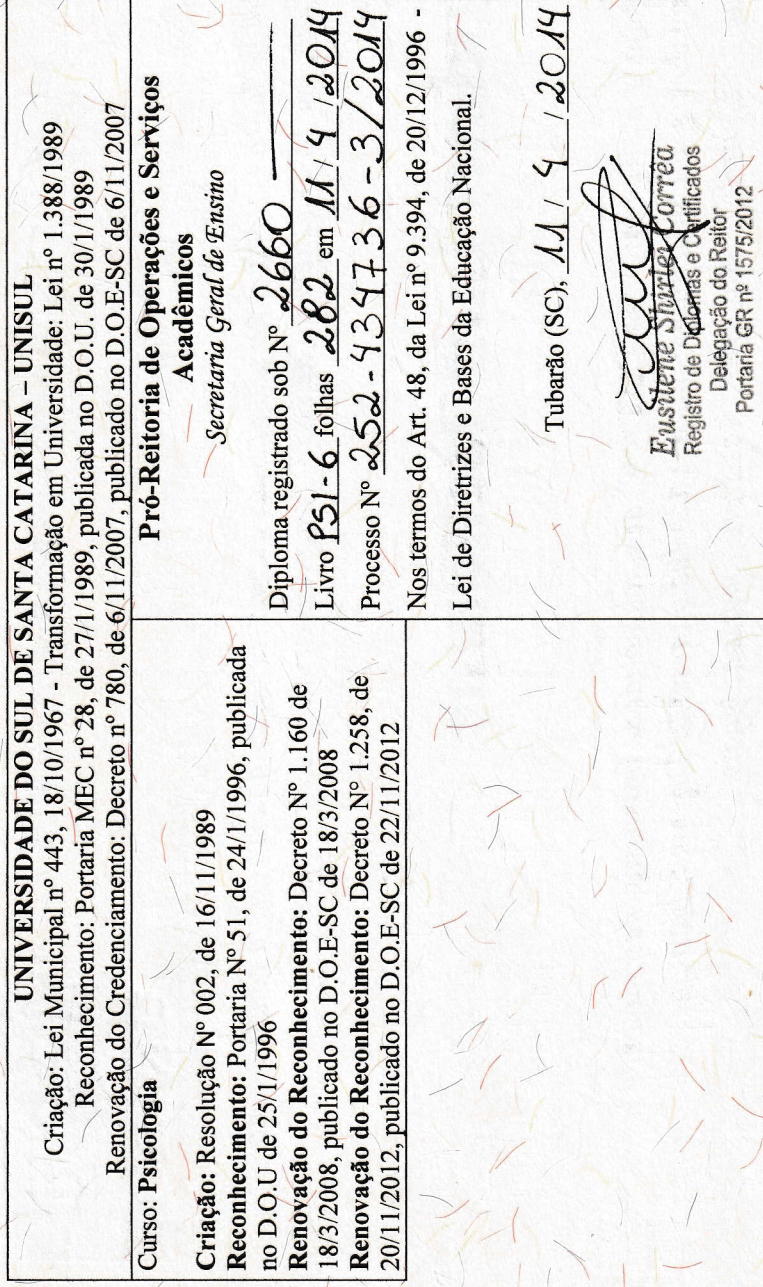 UNIVERSIDADE DO SUL DE SANTA CATARINA – UNISUL
Criação: Lei Municipal nº 443, 18/10/1967 - Transformação em Universidade: Lei nº 1.388/1989
Reconhecimento: Portaria MEC nº 28, de 27/1/1989, publicada no D.O.U. de 30/1/1989
Renovação do Credenciamento: Decreto nº 780, de 6/11/2007, publicado no D.O.E-SC de 6/11/2007
Curso: Psicologia
Criação: Resolução Nº 002, de 16/11/1989
Reconhecimento: Portaria Nº 51, de 24/1/1996, publicada
no D.O.U de 25/1/1996
Renovação do Reconhecimento: Decreto Nº 1.160 de
18/3/2008, publicado no D.O.E-SC de 18/3/2008
Renovação do Reconhecimento: Decreto Nº 1.258, de
20/11/2012, publicado no D.O.E-SC de 22/11/2012
Pró-Reitoria de Operações e Serviços
Acadêmicos
Secretaria Geral de Ensino
Diploma registrado sob Nº 2660
Livro PSI-6 folhas 282 em 11/4/2014
Processo Nº 252-434736-3/2014
Nos termos do Art. 48, da Lei nº 9.394, de 20/12/1996 -
Lei de Diretrizes e Bases da Educação Nacional.
Tubarão (SC), 11/4/2014
Corrêa
Registro de Diplomas e Certificados
Delegação do Reitor
Portaria GR nº 1575/2012